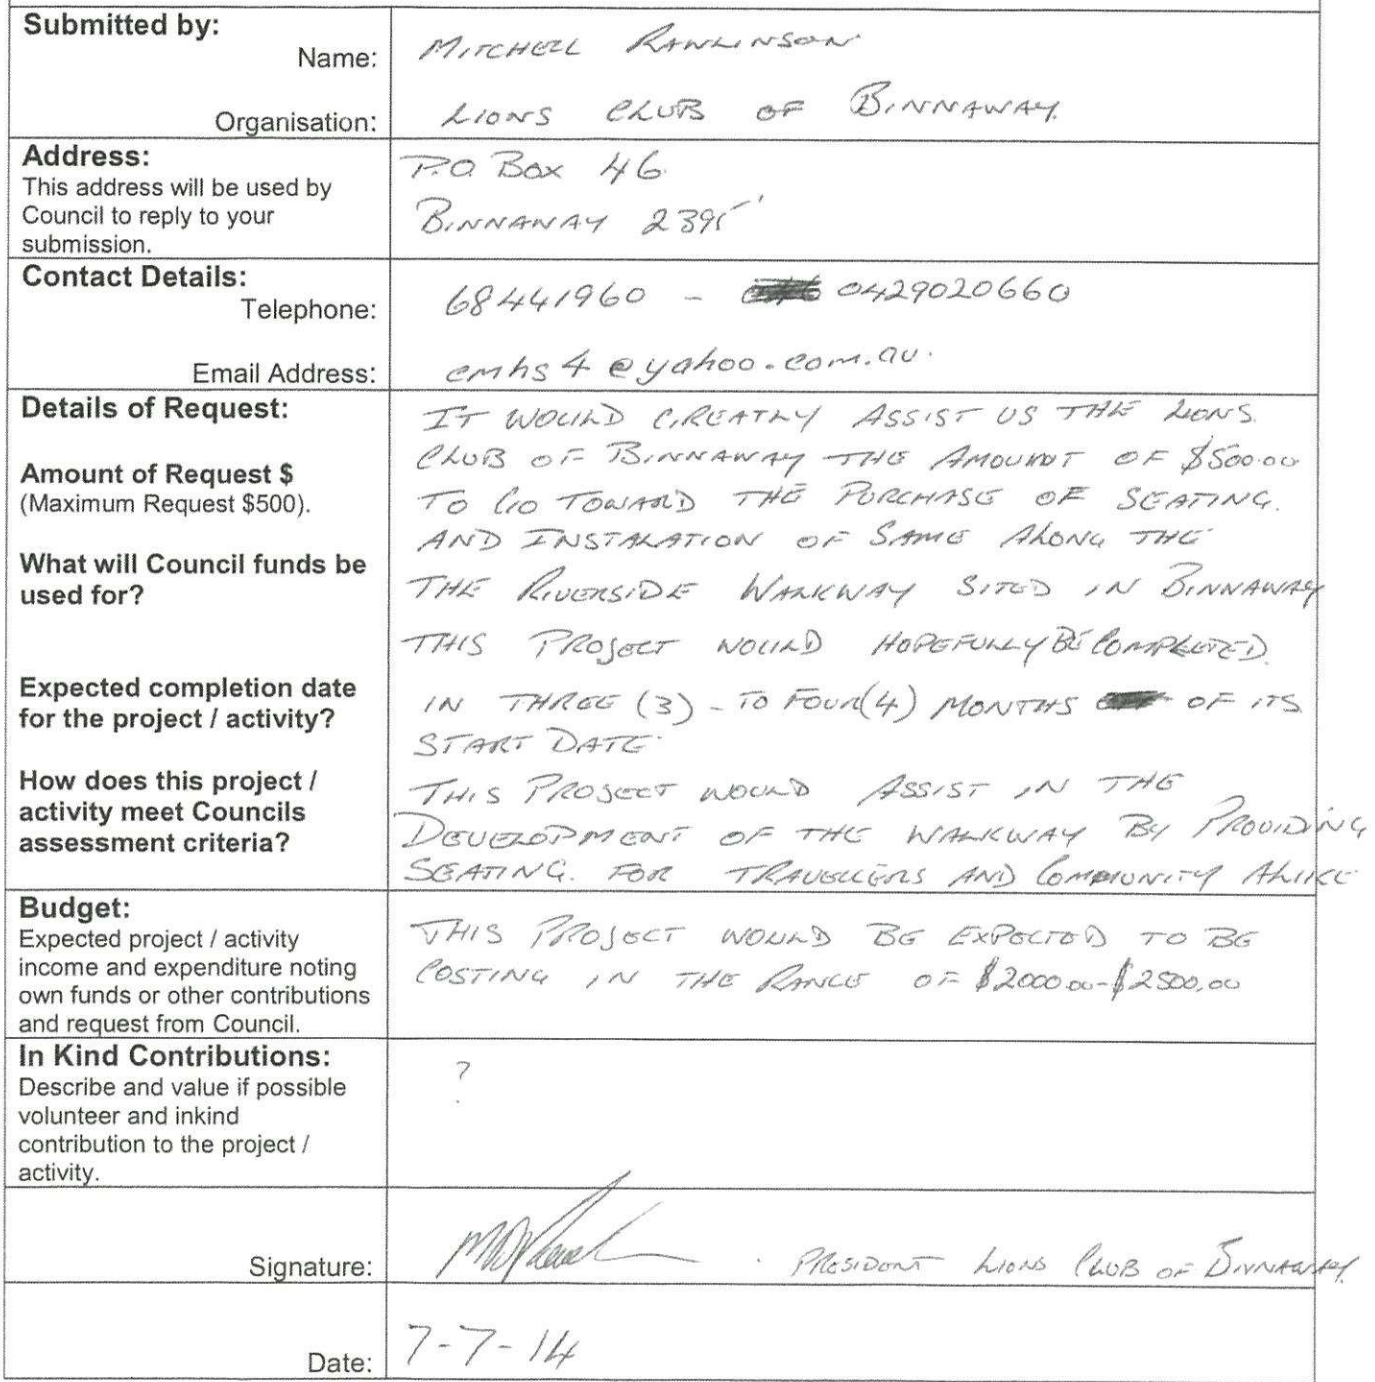 Submitted by:
Name: MITCHELL RAWLINSON
Organisation: LIONS CLUB OF BINNAWAY
Address:
This address will be used by
Council to reply to your
submission.
P.O. BOX 46
BINNAWAY 2395
Contact Details:
Telephone: 68441960 - 0429020660
Email Address: emhs4@yahoo.com.au.
Details of Request:
Amount of Request $
(Maximum Request $500).
What will Council funds be
used for?
Expected completion date
for the project / activity?
How does this project /
activity meet Councils
assessment criteria?
IT WOULD GREATLY ASSIST US THE LIONS
CLUB OF BINNAWAY THE AMOUNT OF $500.00
TO GO TOWARD THE PURCHASE OF SEATING.
AND INSTALATION OF SAME ALONG THE
THE RIVERSIDE WALKWAY SITED IN BINNAWAY
THIS PROJECT WOULD HOPEFULLY BE COMPLETED.
IN THREE (3) - TO FOUR (4) MONTHS OF ITS
START DATE.
THIS PROJECT WOULD ASSIST IN THE
DEVELOPMENT OF THE WALKWAY BY PROVIDING
SEATING. FOR TRAVELLERS AND COMMUNITY ALIKE
Budget:
Expected project / activity
income and expenditure noting
own funds or other contributions
and request from Council.
THIS PROJECT WOULD BE EXPECTED TO BE
COSTING IN THE RANGE OF $2000.00-$2500.00
In Kind Contributions:
Describe and value if possible
volunteer and inkind
contribution to the project /
activity.
?
Signature: PRESIDENT LIONS CLUB OF BINNAWAY.
Date: 7-7-14